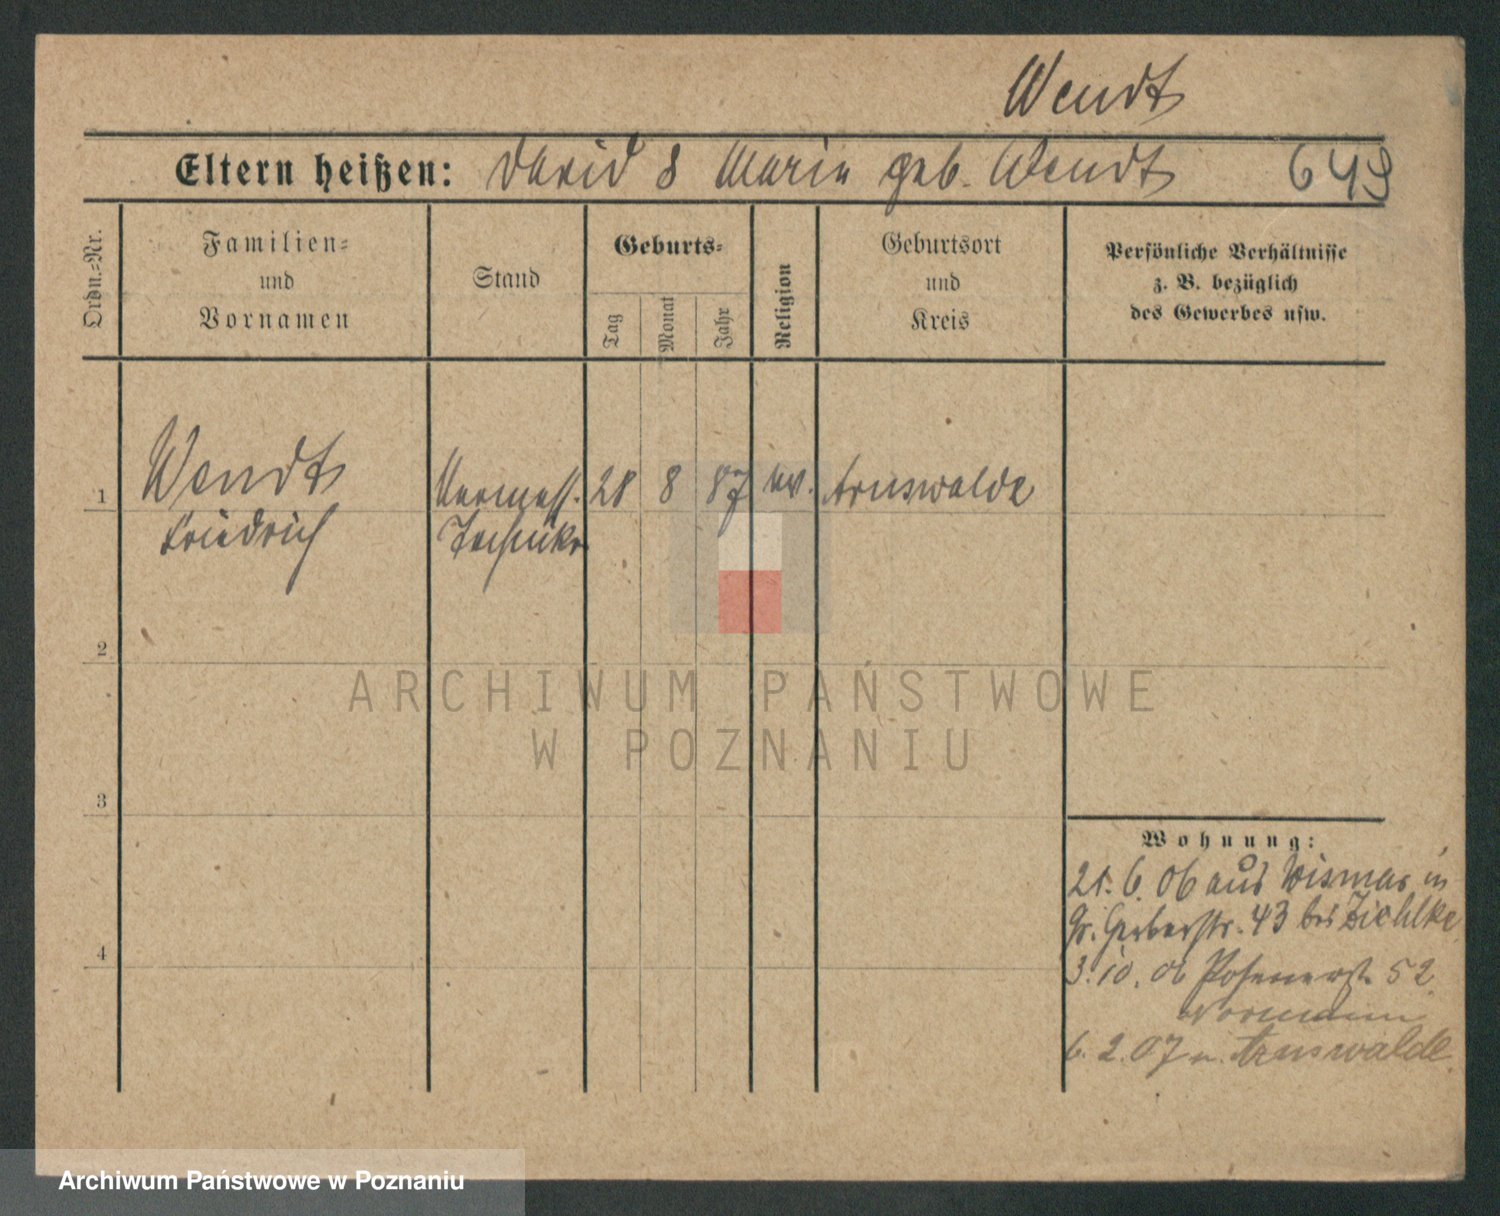 Wendt
Eltern heißen: David & Marie geb. Wendt 649
Ordn.-Nr.
Familien-
und
Vornamen
Stand
Geburts-
Tag
Monat
Jahr
Religion
Geburtsort
und
Kreis
Persönliche Verhältnisse
z. B. bezüglich
des Gewerbes usw.
1 Wendt Vermess. 28 8 87 ev. Arnswalde
Friedrich Techniker
2
ARCHIWUM PAŃSTWOWE
W POZNANIU
3
Wohnung:
21. 6. 06 aus Wismar in
Gr. Gerberstr. 43 bei Ziehlke
4
3. 10. 06 Posenerstr. 52
6. 2. 07 n. Arnswalde
Archiwum Państwowe w Poznaniu